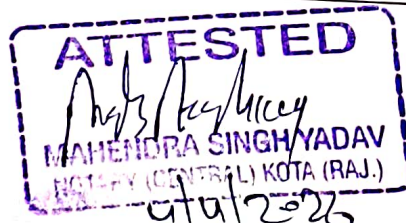 ATTESTED
MAHENDRA SINGH YADAV
NOTARY (CENTRAL) KOTA (RAJ.)